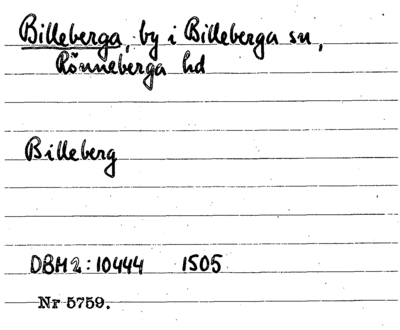 Billeberga, by i Billeberga sn,
Rönneberga hd
Billeberg
DBH2:10444 1505
Nr 5759.